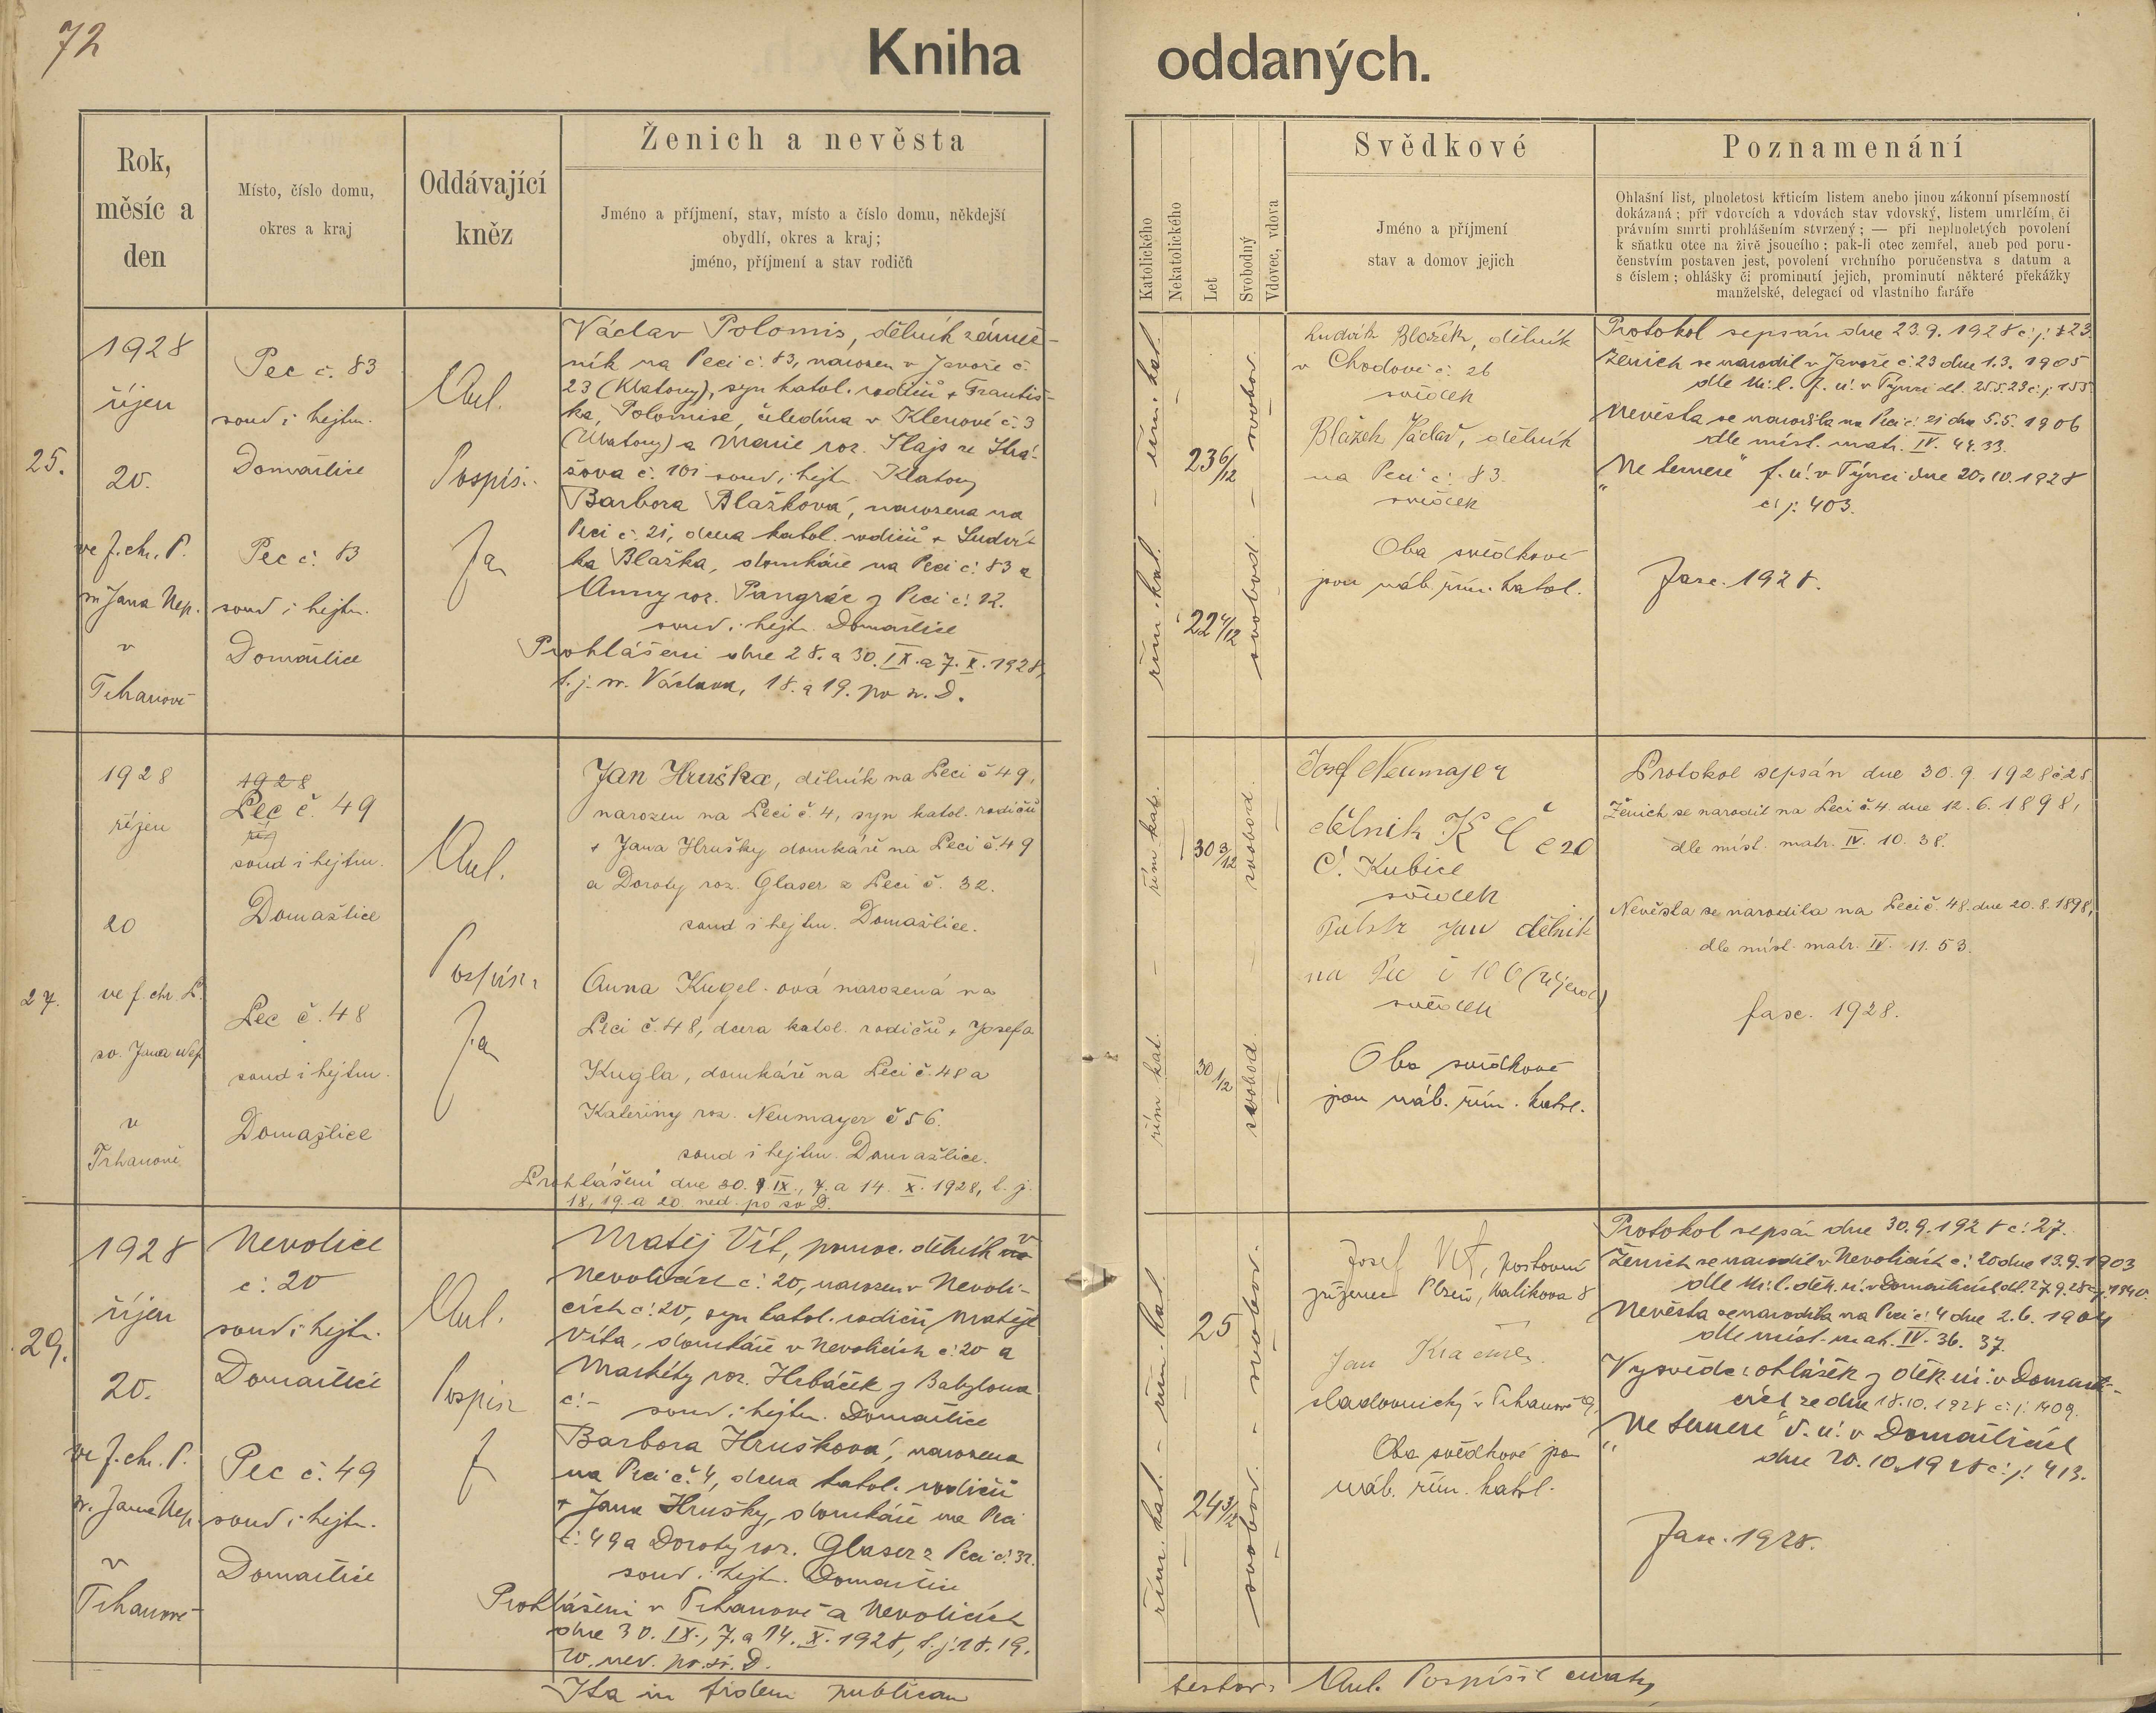 72
Kniha oddaných.
Rok,
měsíc a
den
Místo, číslo domu,
okres a kraj
Oddávající
kněz
Ženich a nevěsta
Jméno a příjmení, stav, místo a číslo domu, někdejší
obydlí, okres a kraj;
jméno, příjmení a stav rodičů
Katolického
Nekatolického
Let
Svobodný
Vdovec, vdova
Svědkové
Jméno a příjmení
stav a domov jejich
Poznamenání
Ohlašní list, plnoletost křticím listem anebo jinou zákonní písemností
dokázaná; při vdovcích a vdovách stav vdovský, listem umrlčím, či
právním smrti prohlášením stvrzený; — při neplnoletých povolení
k sňatku otce na živě jsoucího; pak-li otec zemřel, aneb pod poru-
čenstvím postaven jest, povolení vrchního poručenstva s datum a
s číslem; ohlášky či prominutí jejich, prominutí některé překážky
manželské, delegací od vlastního faráře
25.
1928
říjen
20.
ve f. chr. P.
sv. Jana Nep.
v
Trhanově
Pec č. 83
soud i hejtm.
Domažlice
Pec č. 83
soud i hejtm.
Domažlice
Ant.
Pospíš.
Václav Polomis, dělník zámeč-
ník na Peci č. 83, narozen v Javoře č.
23 (Klatovy), syn katol. rodičů + Františ-
ka Polomise, čeledína v Klenové č. 3
(Klatovy) a Marie roz. Hajs ze Strá-
žova č. 101 soud i hejt. Klatovy
Barbora Blažková, narozena na
Peci č. 21, dcera katol. rodičů + Ludví-
ka Blažka, domkáře na Peci č. 83 a
Anny roz. Pangrác z Peci č. 12.
soud i hejt. Domažlice
Prohlášeni dne 28. a 30. IX. a 7. X. 1928,
t. j. sv. Václava, 18. a 19. po sv. D.
řím. kat.
23 6/12
svobod.
řím. kat.
22
svobod.
Ludvík Blažek, dělník
v Chodově č. 26
svědek
Blažek Václav, dělník
na Peci č. 83
svědek
Oba svědkové
jsou náb. řím. katol.
Protokol sepsán dne 23. 9. 1928 č. j. 23
Ženich se narodil v Javoře č. 23 dne 1. 3. 1905
Nevěsta se narodila na Peci č. 21 dne 5. 5. 1906
dle míst. matr. IV. 44. 33.
"Ne temere" f. ú. v Týnci dne 20. 10. 1928
č. j. 403.
Fasc. 1928.
27.
1928
říjen
20
ve f. chr. P.
sv. Jana Nep.
v
Trhanově
1928
Pec č. 49
soud i hejtm.
Domažlice
Pec č. 48
soud i hejtm.
Domažlice
Ant.
Pospíšil
Jan Hruška, dělník na Peci č 49,
narozen na Peci č. 4, syn katol. rodičů
+ Jana Hrušky domkáře na Peci č. 49
a Doroty roz. Glaser z Peci č. 32.
soud i hejtm. Domažlice.
Anna Kugel-ová narozená na
Peci č. 48, dcera katol. rodičů + Josefa
Kugla, domkáře na Peci č. 48 a
Kateřiny roz. Neumayer č 56.
soud i hejtm. Domažlice.
Prohlášení dne 30. IX., 7. a 14. X. 1928, t. j.
18, 19. a 20 ned. po sv D.
řím kat.
30 3/12
svobod.
řím kat.
30 1/2
svobod.
Josef Neumajer
dělnik K Č č 20
Č. Kubice
svědek
Jan dělnik
na Pec č 106
svědek
Oba svědkové
jsou náb. řím. katol.
Protokol sepsán dne 30. 9. 1928 č 25
Ženich se narodil na Peci č. 4. dne 12. 6. 1898,
dle míst. matr. IV. 10. 38.
Nevěsta se narodila na Peci č. 48. dne 20. 8. 1898,
dle míst. matr. IV. 11. 53.
fasc. 1928.
29.
1928
říjen
20.
ve f. chr. P.
sv. Jana Nep.
v
Trhanově
Nevolice
č. 20
soud i hejt.
Domažlice
Pec č. 49
soud i hejt.
Domažlice
Ant.
Pospíšil
Matěj Vít, pomoc. dělník v
Nevolicích č. 20, narozen v Nevoli-
cích č. 20, syn katol. rodičů Matěje
Víta, domkáře v Nevolicích č. 20 a
Markéty roz. Hrbáček z Babylona
č. – soud i hejtm. Domažlice
Barbora Hrušková, narozena
na Peci č. 4, dcera katol. rodičů
+ Jana Hrušky, domkáře na Peci
č. 49 a Doroty roz. Glaser z Peci č. 32.
soud i hejt. Domažlice
Prohlášeni v Trhanově a Nevolicích
dne 30. IX., 7. a 14. X. 1928, t. j. 18. 19.
20. ned. po sv. D.
řím. kat.
25
svobod.
řím. kat.
24 3/12
svobod.
Josef Vít, poštovní
zřízenec Plzeň, Malikova 8
Jan
sladovnický v Trhanově 9
Oba svědkové jsou
náb. řím. katol.
Protokol sepsán dne 30. 9. 1928 č. 27.
Ženich se narodil v Nevolicích č. 20 dne 13. 9. 1903
Nevěsta se narodila na Peci č. 4 dne 2. 6. 1904
dle míst. mat. IV. 36. 37.
Vysvědč. ohlášek z děk. ú. v Domažli-
cích ze dne 18. 10. 1928 č. j. 1409.
"Ne temere" d. ú. v Domažlicích
dne 20. 10. 1928 č. j. 413.
Fasc. 1928.
Ita in fidem publicam
testor: Ant. Pospíšil